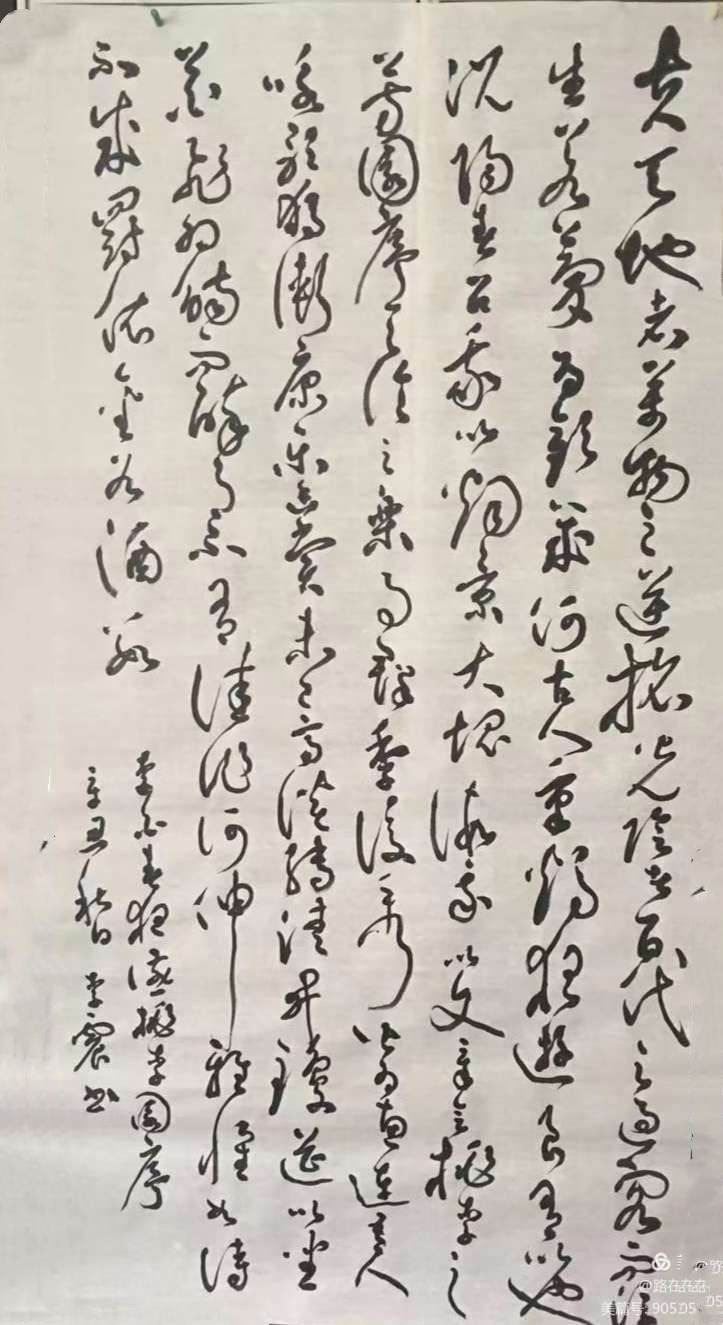 夫天地者萬物之逆旅光陰者百代之過客而浮
生若夢為歡幾何古人秉燭夜遊良有以也
況陽春召我以煙景大塊假我以文章會桃李之
芳園序天倫之樂事群季俊秀皆為惠連吾人
詠歌獨慚康樂幽賞未已高談轉清開瓊筵以坐
花飛羽觴而醉月不有佳作何伸雅懷如詩
不成罰依金谷酒數
李白春夜宴桃李園序
辛丑秋日 李震書
@路在在在
美篇号